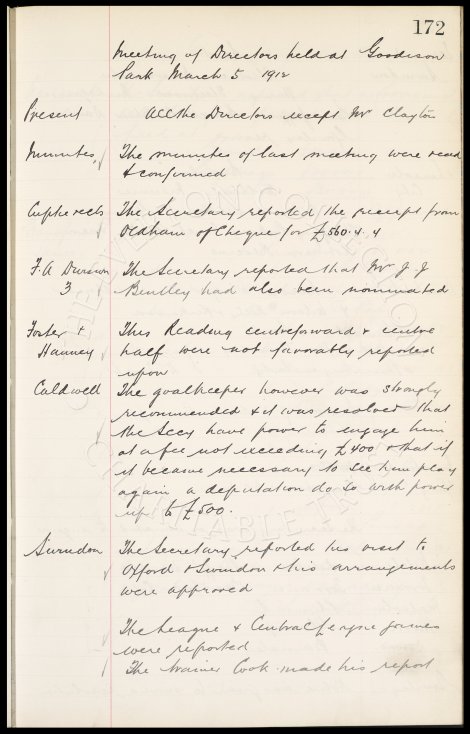 172
Meeting of Directors held at Goodison
Park March 5 1912
Present All the Directors except Mr Clayton
Minutes The minutes of last meeting were read
& confirmed
Cuptie rects The Secretary reported the receipt from
Oldham of Cheque for £560.4.4
F.A Division The Secretary reported that Mr J. J
3 Bentley had also been nominated
Foster & This Reading centreforward & centre
Hanney half were not favorably reported
upon
Caldwell The goalkeeper however was strongly
recommended & it was resolved that
the Secy have power to engage him
at a fee not exceeding £400 & that if
it became necessary to see him play
again a deputation do so with power
up to £500.
Swindon The Secretary reported his visit to
Oxford & Swindon & his arrangements
were approved
The League & Central League games
were reported
The trainer Cook made his report